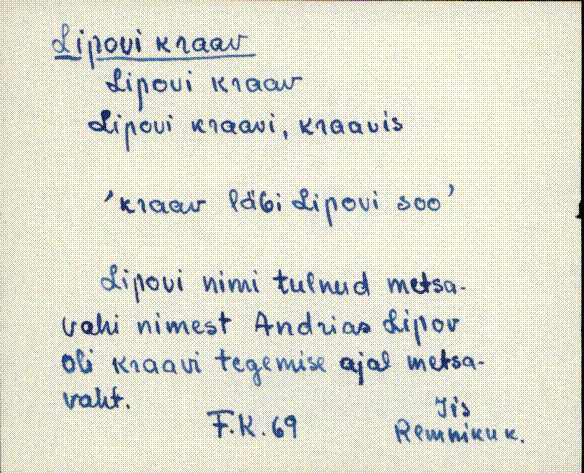 Lipovi kraav
Lipovi kraav
Lipovi kraavi, kraavis
'kraav läbi Lipovi soo'
Lipovi nimi tulnud metsa-
vahi nimest Andrias Lipov
oli kraavi tegemise ajal metsa-
vaht.
F.K. 69
Iis
Remniku k.